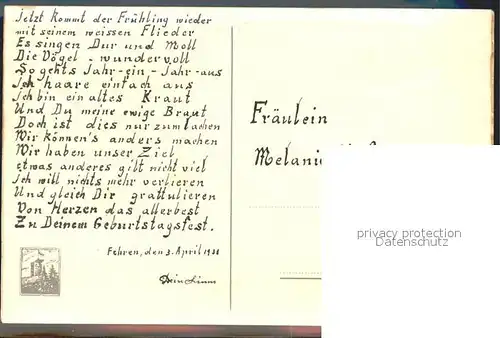 Jetzt kommt der Frühling wieder
mit seinem weissen Flieder
Es singen Dur und Moll
Die Vögel - wundervoll
So gehts Jahr-ein-Jahr-aus
Ich haare einfach aus
Ich bin ein altes Kraut
Und Du meine ewige Braut
Doch ist dies nur zum lachen
Wir können's anders machen
Wir haben unser Ziel
etwas anderes gilt nicht viel
Ich will nichts mehr verlieren
Und gleich Dir grattulieren
Von Herzen das allerbest
Zu Deinem Geburtstagsfest.
Fehren, den 3. April
Dein
Fräulein
privacy protection
Datenschutz